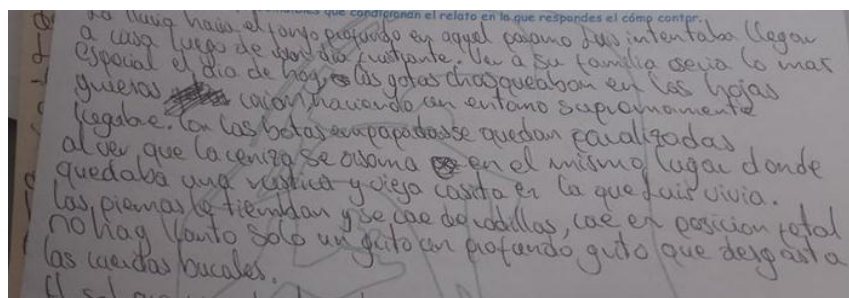 que condicionan el relato en lo que respondes el cómo contar.
La lluvia hacia el fango profundo en aquel paramo Luis intentaba llegar
a casa luego de un dia frustrante. Ver a su familia seria lo mas
especial el dia de hoy, las gotas chasqueaban en las hojas
gruesas caian haciendo un entorno supremamente
. Con las botas empapadas se quedan paralizadas
al ver que la ceniza se asoma en el mismo lugar donde
quedaba una rustica y vieja casita en la que Luis vivia.
Las piernas le tiemblan y se cae de rodillas, cae en posicion fetal
no hay llanto solo un grito un profundo grito que desgasta
las cuerdas bucales.
El sol